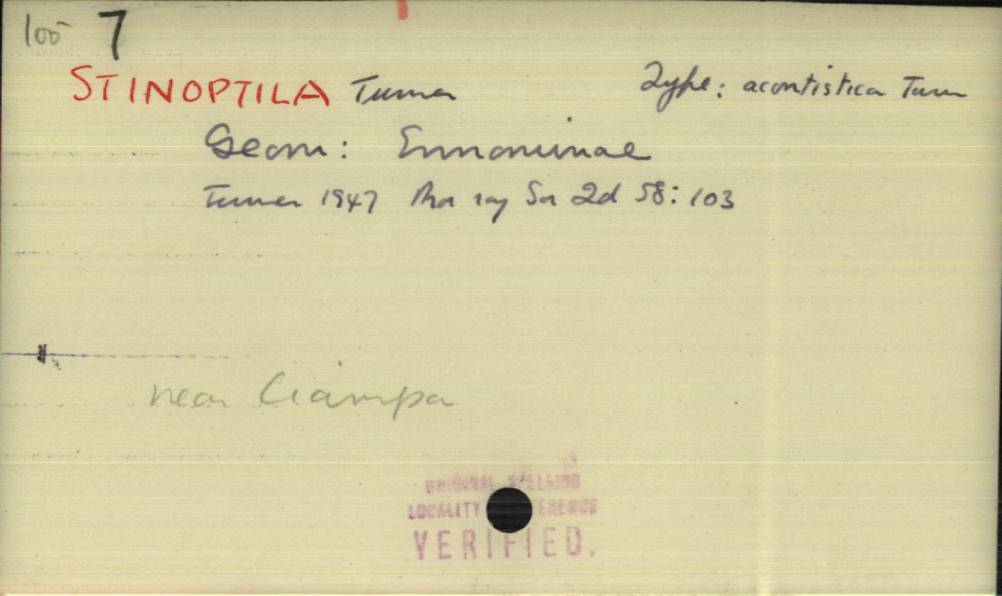 100 7
STINOPTILA Turner Type: acontistica Turn
Geom: Ennominae
Turner 1947 Pro roy Soc Qd 58: 103
near Ciampa
ORIGINAL SPELLING
LOCALITY REFERENCE
VERIFIED.